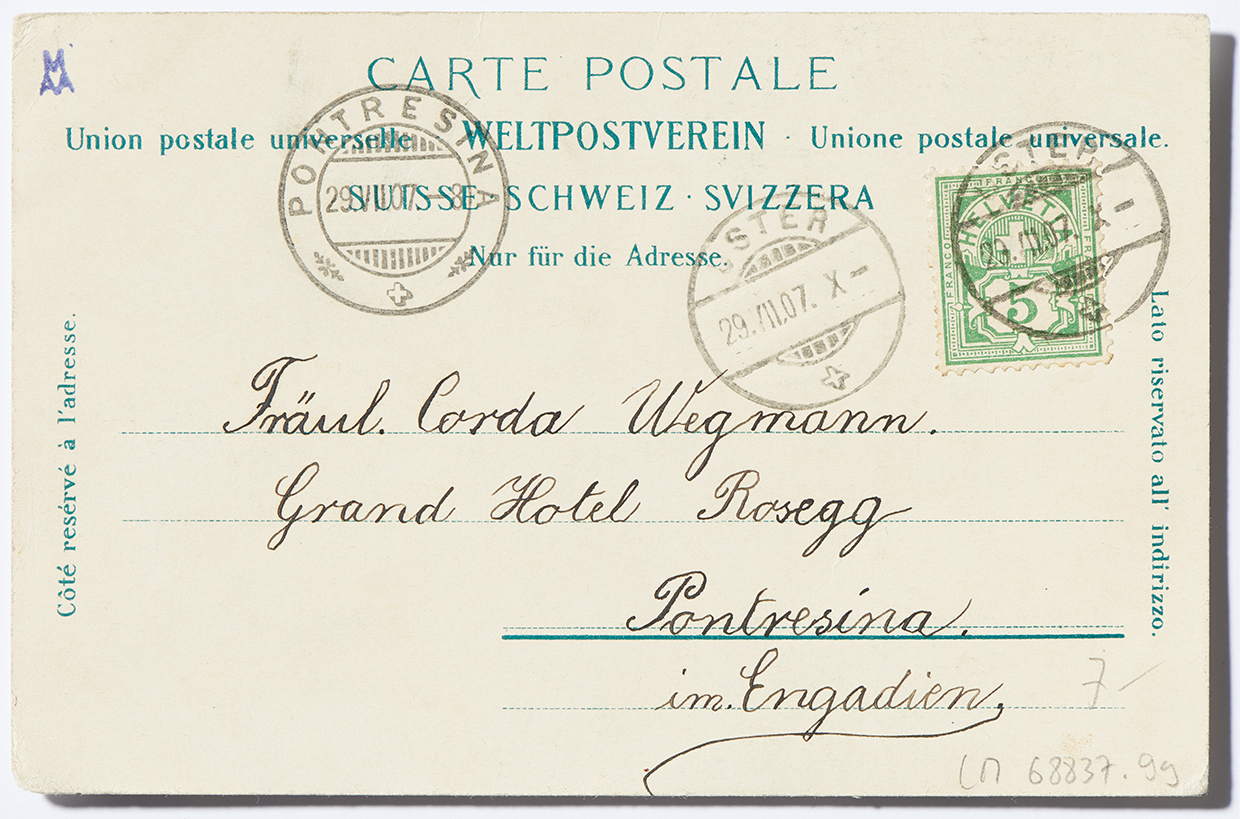 CARTE POSTALE
Union postale universelle · WELTPOSTVEREIN · Unione postale universale.
SUISSE · SCHWEIZ · SVIZZERA
Nur für die Adresse.
PONTRESINA
29.VII.07.-8
USTER
29.VII.07. X-
USTER
29.VII.07. X-
FRANCO
FRANCO
HELVETIA
5
Côté resérvé à l'adresse.
Lato riservato all' indirizzo.
Fräul. Corda Wegmann.
Grand Hotel Rosegg
Pontresina.
im. Engadien.
7-
LM 68837.99